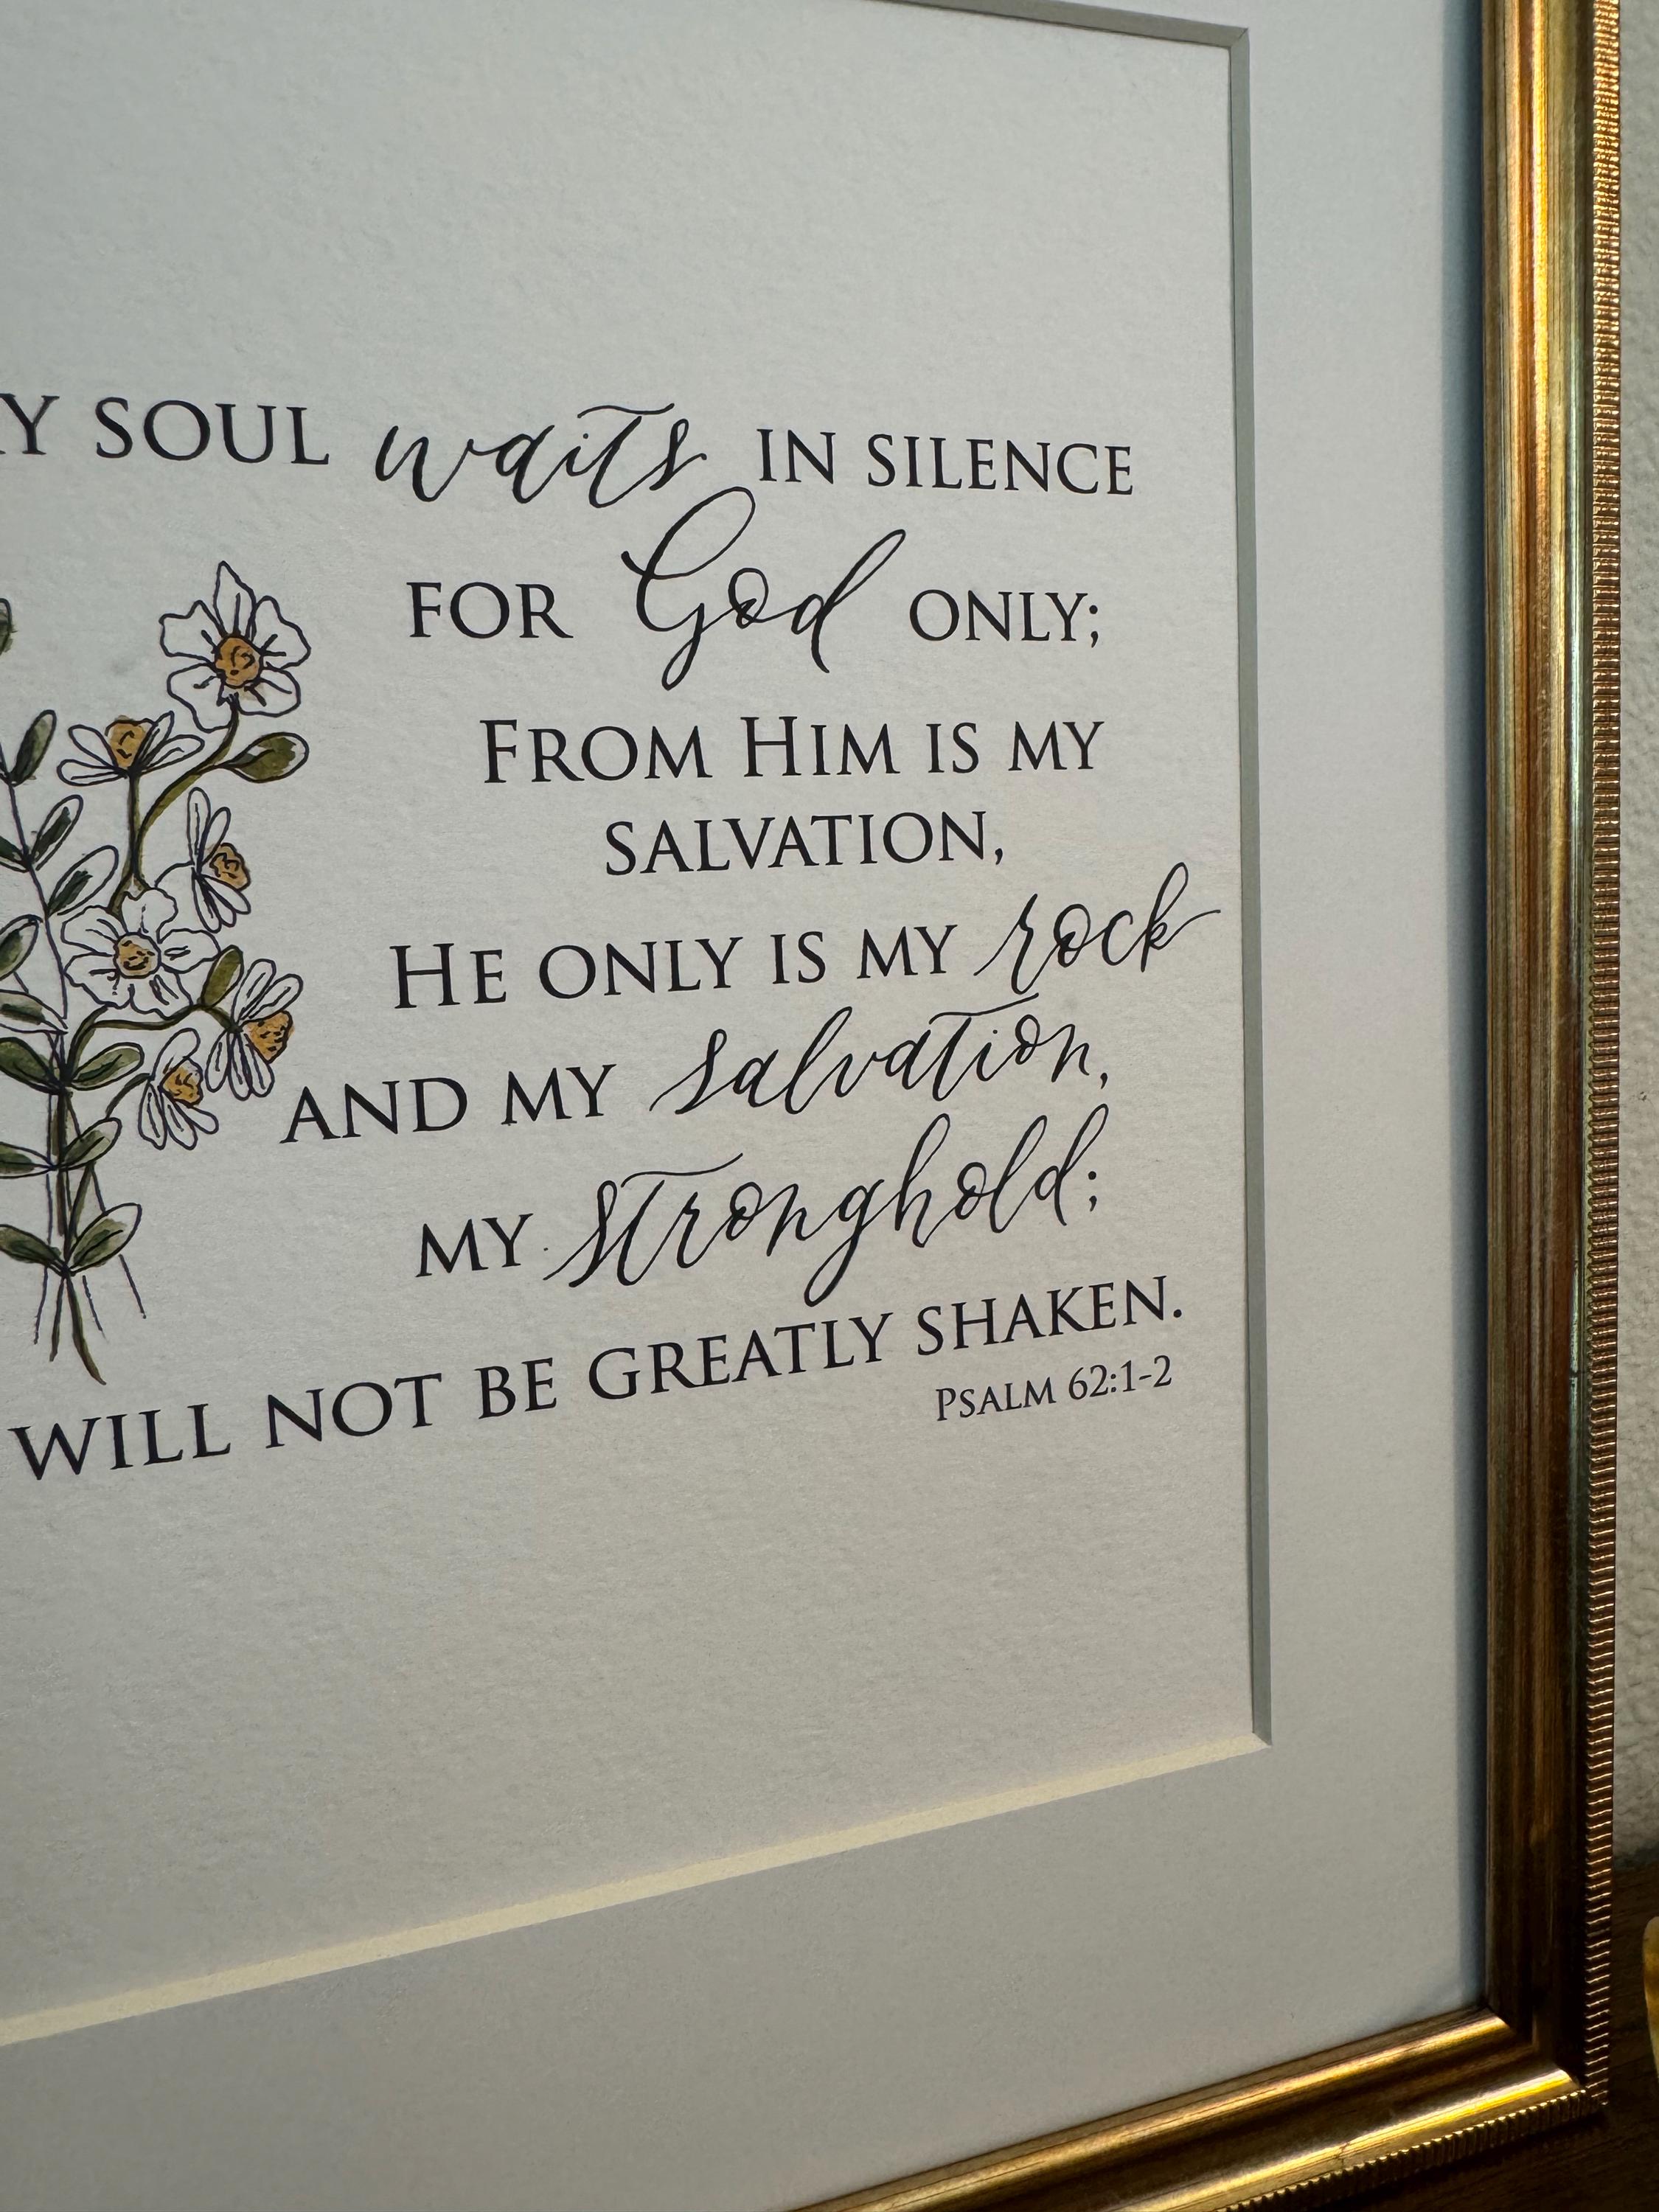 Y SOUL waits IN SILENCE
FOR God ONLY;
FROM HIM IS MY
SALVATION,
HE ONLY IS MY rock
AND MY salvation,
MY stronghold;
WILL NOT BE GREATLY SHAKEN.
PSALM 62:1-2